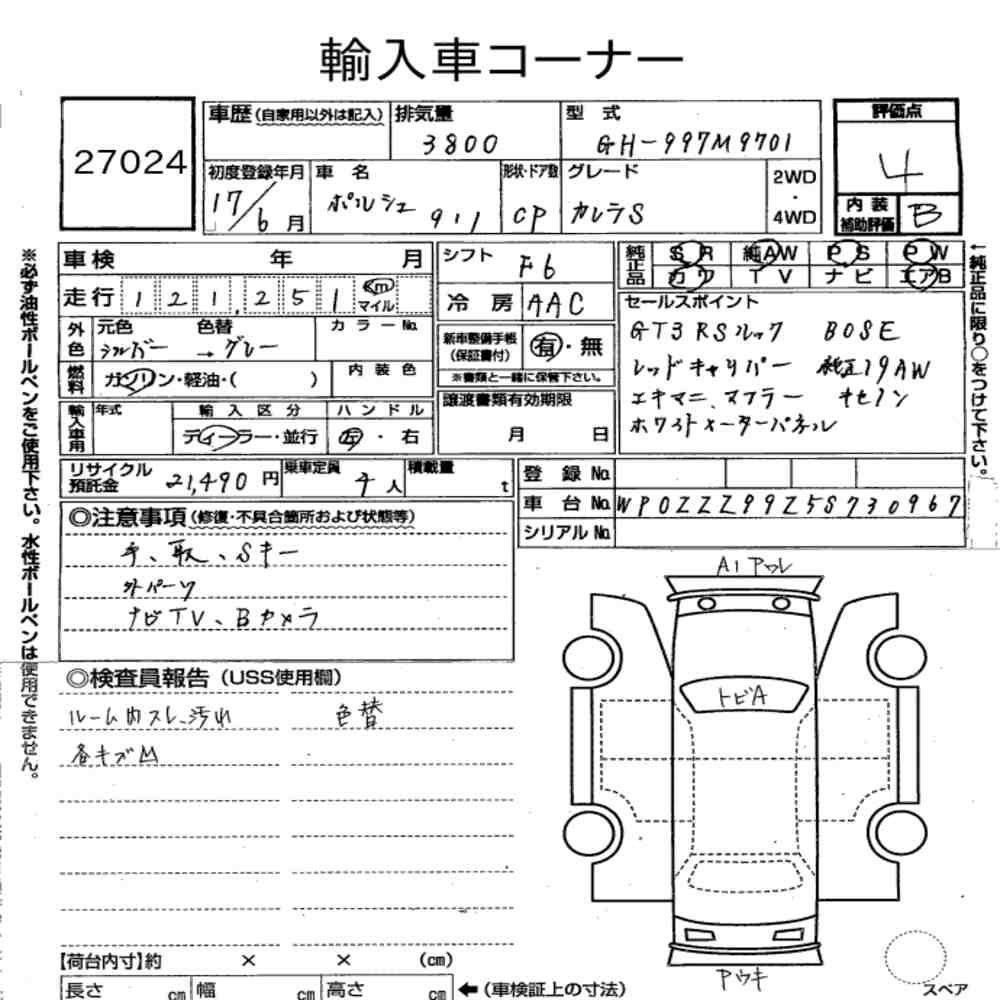 輸入車コーナー
27024
車歴 (自家用以外は記入)
排気量
3800
型式
GH-997M9701
評価点
4
初度登録年月
17/6月
車名
ポルシェ 911
形状・ドア数
CP
グレード
カレラS
2WD
・
4WD
内装
補助評価
B
車検 年 月
シフト
F6
純正品
SR 純AW PS PW
カワ TV ナビ エアB
走行 1 2 1, 2 5 1 km マイル
冷房 AAC
セールスポイント
GT3RSルック BOSE
レッドキャリパー 純正19AW
エキマニ、マフラー キセノン
ホワイトメーターパネル
外色
元色 色替
シルバー → グレー
カラーNo.
新車整備手帳
(保証書付)
有・無
※書類と一緒に保管下さい。
燃料
ガソリン・軽油・( )
内装色
譲渡書類有効期限
月 日
輸入車用
年式
輸入区分
ディーラー・並行
ハンドル
左・右
リサイクル
預託金
21,490円
乗車定員
4人
積載量
t
登録No.
車台No. WP0ZZZ99Z5S730967
シリアルNo.
◎注意事項 (修復・不具合箇所および状態等)
手、取、Sキー
外パーツ
ナビTV、Bカメラ
◎検査員報告 (USS使用欄)
ルーム内スレ、汚れ 色替
各キズ凹
A1 アワレ
トビA
アウキ
スペア
【荷台内寸】約 × × (cm)
長さ cm 幅 cm 高さ cm ←(車検証上の寸法)
※必ず油性ボールペンをご使用下さい。水性ボールペンは使用できません。
←純正品に限り○をつけて下さい。